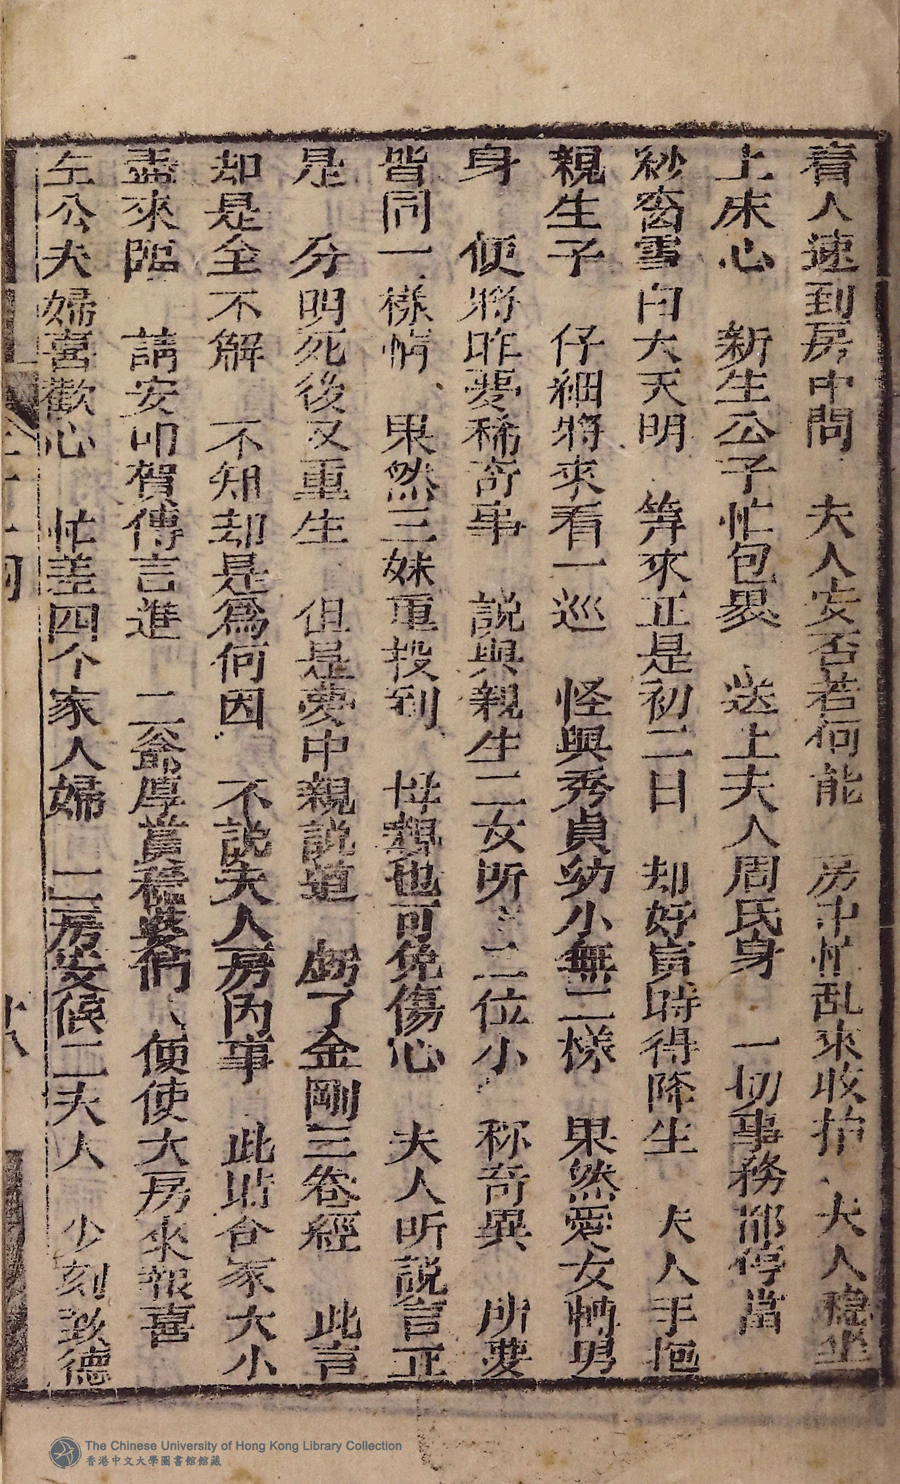 着人速到房中問　夫人安否若何能　房中忙乱來收拾　夫人穩坐
上床心　新生公子忙包裹　送上夫人周氏身　一切事務都停當
紗窓雪白大天明　筭來正是初二日　却好寅時得降生　夫人手抱
親生子　仔細將來看一巡　怪與秀貞幼小無二樣　果然愛女轉男
身　便將昨夢稀奇事　說與親生二女所　二位小　称奇異　所要
皆同一樣情　果然三妹重投到　母親也可免傷心　夫人听說言正
是　分明死後又重生　但是夢中親說道　虧了金剛三卷經　此言
却是全不解　不知却是爲何因　不說夫人房内事　此時合家大小
盡來臨　請安叩賀傳言進　二爺厚賞穩婆們　便使大房來報喜
左公夫婦喜歡心　忙差四个家人婦　二房安候二夫人　少刻致德
廿八
The Chinese University of Hong Kong Library Collection
香港中文大學圖書館館藏